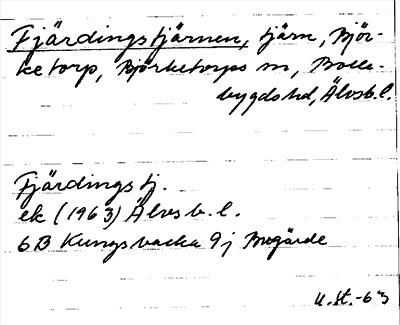 Fjärdingstjärnen, tjärn, Björ-
ketorp, Björketorps sn, Bolle-
bygds hd, Älvsb. l.
Fjärdings tj.
ek (1963) Älvsb. l.
6B Kungsbacka 9j
U. St. -63